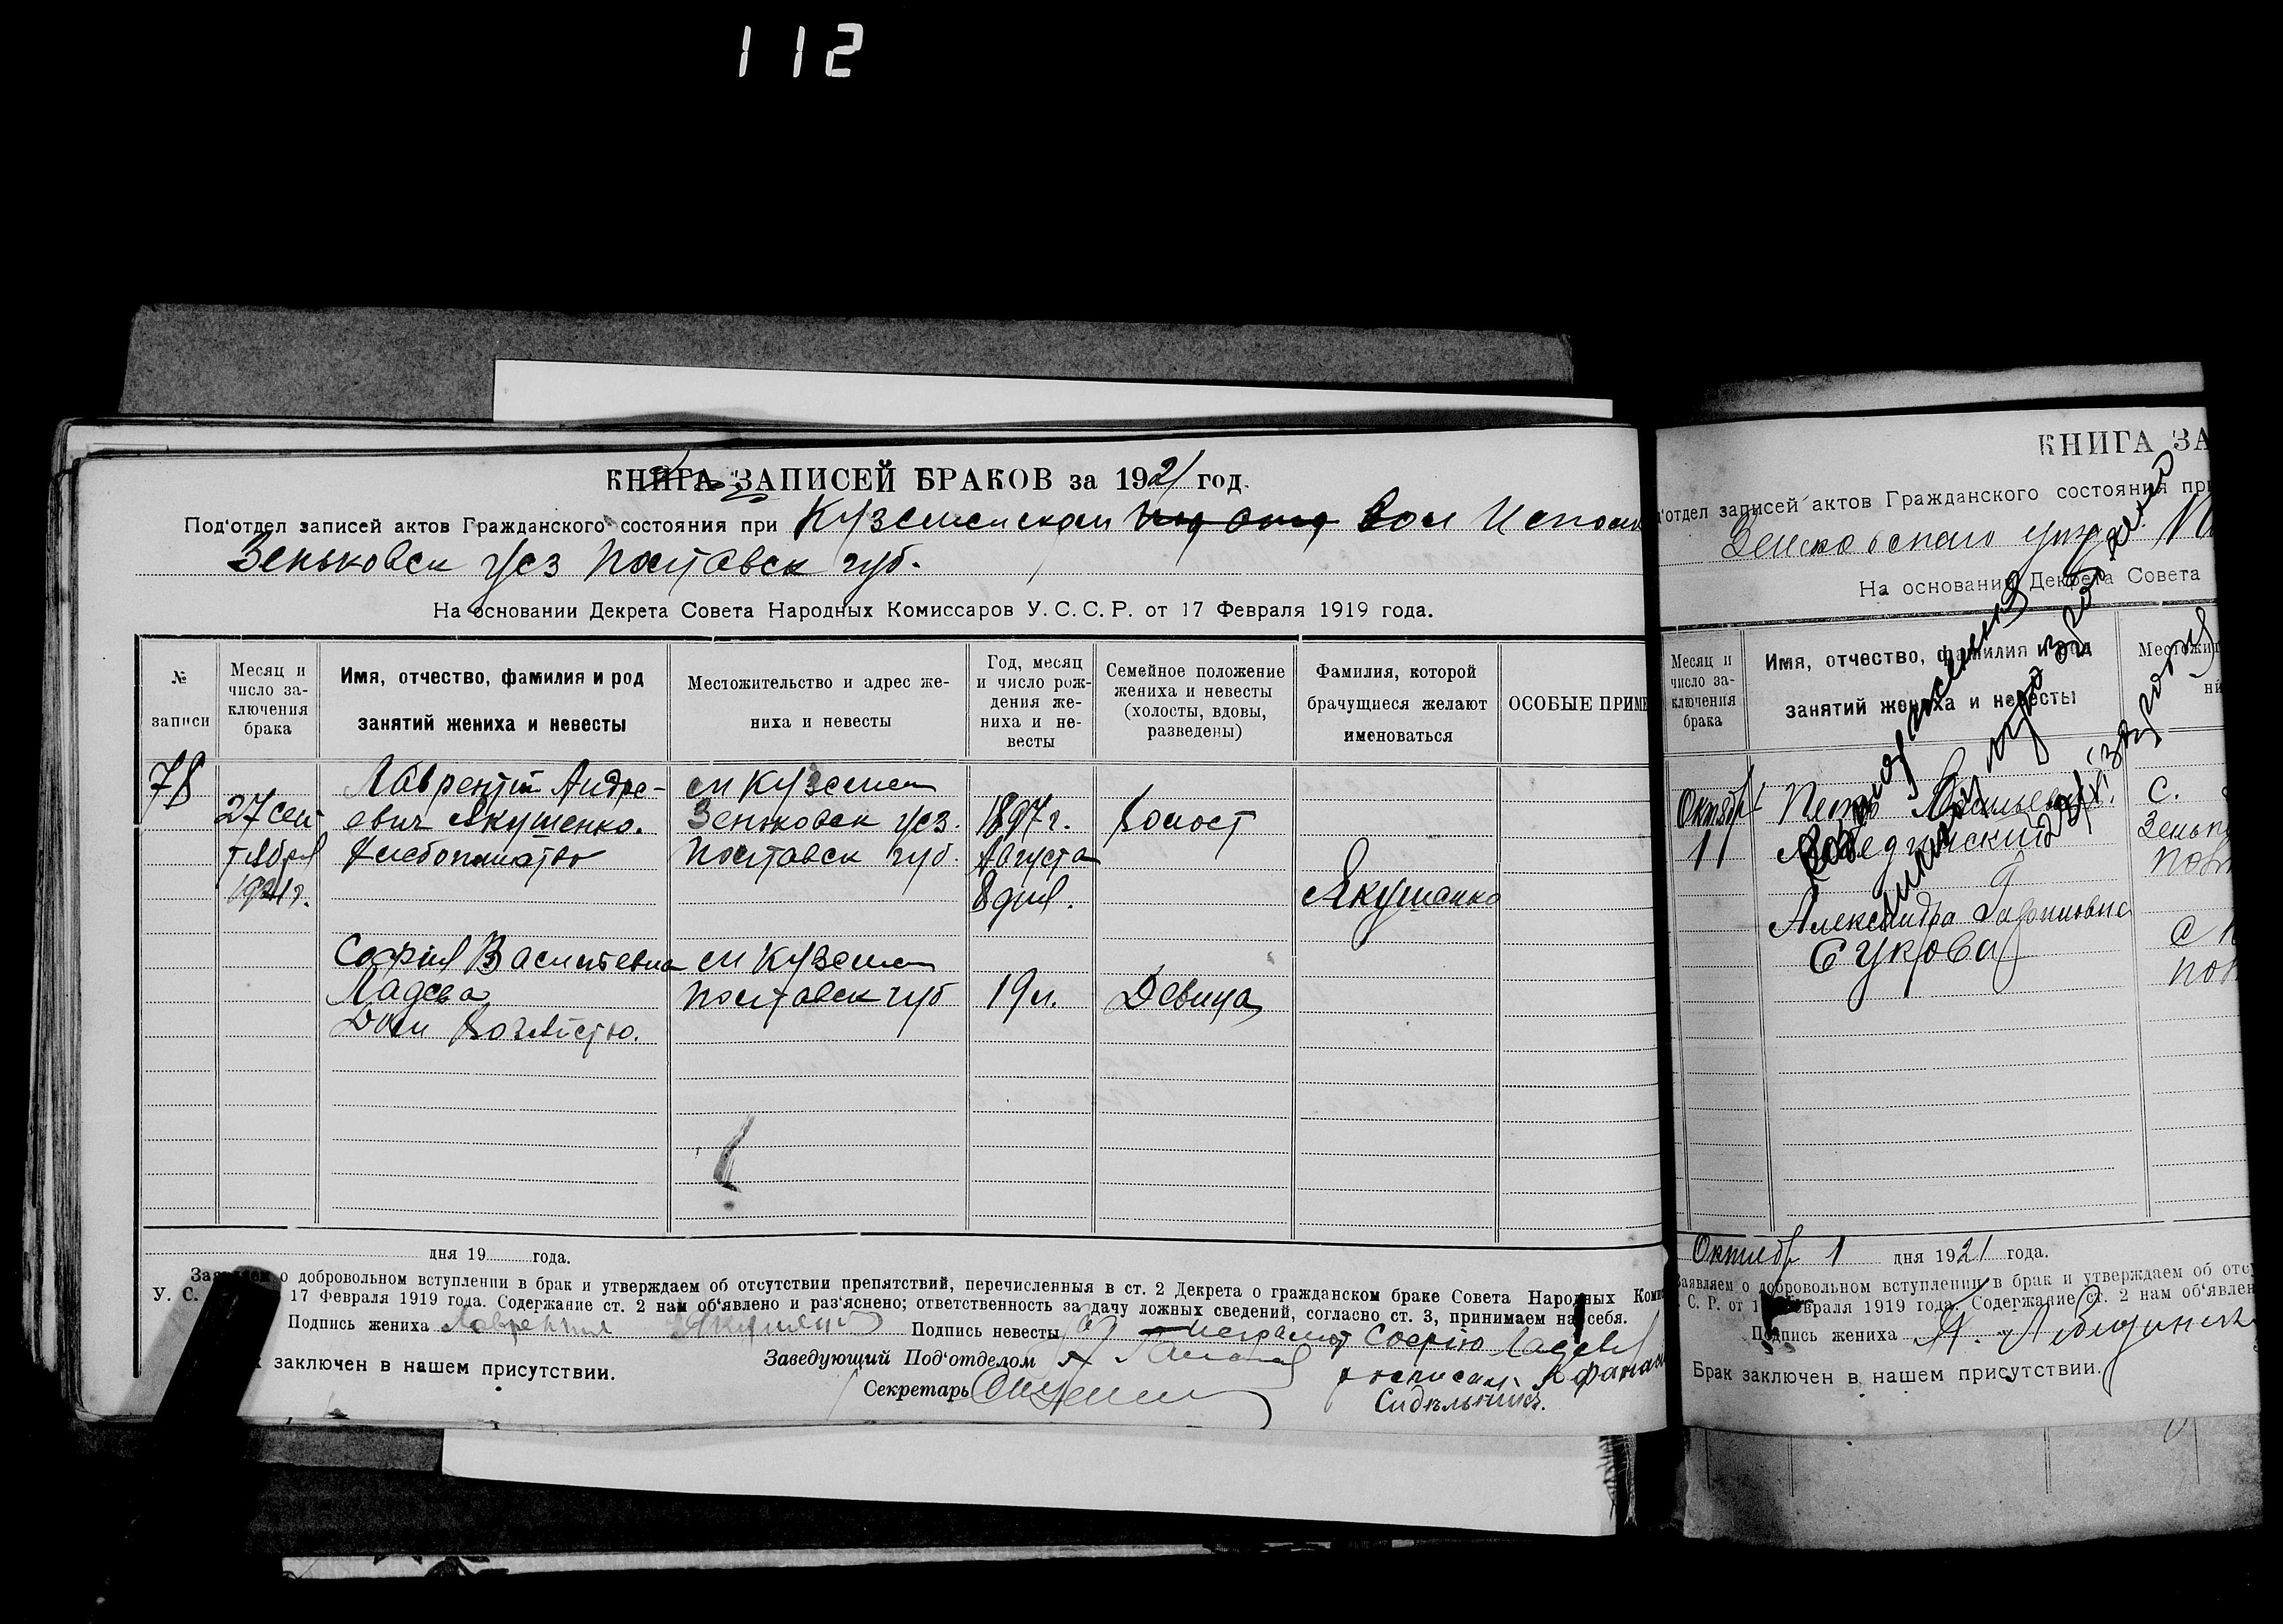 112
КНИГА ЗАПИСЕЙ БРАКОВ за 1921 год.
Под'отдел записей актов Гражданского состояния при Куземенском Вол Исполк
Зеньковск Уез Полтавск губ.
На основании Декрета Совета Народных Комиссаров У.С.С.Р. от 17 Февраля 1919 года.
№ записи
Месяц и число заключения брака
Имя, отчество, фамилия и род занятий жениха и невесты
Местожительство и адрес жениха и невесты
Год, месяц и число рождения жениха и невесты
Семейное положение жениха и невесты (холосты, вдовы, разведены)
Фамилия, которой брачущиеся желают именоваться
ОСОБЫЕ ПРИМЕ
78 Лаврентий Андре- м Куземен
27 сен- евич Якушенко. Зеньковск уез. 1897 г. Холост
тября Хлебопашество Полтавск губ. Августа
1921 г. 8 дня. Якушенко
София Васильевна м Куземен
Ладева Полтавск губ 19 л. Девица
Дом Хозяйство.
дня 19 года.
о добровольном вступлении в брак и утверждаем об отсутствии препятствий, перечисленныя в ст. 2 Декрета о гражданском браке Совета Народных Коми
У. С. 17 Февраля 1919 года. Содержание ст. 2 нам об'явлено и раз'яснено; ответственность за дачу ложных сведений, согласно ст. 3, принимаем на себя.
Подпись жениха Лаврентий Якушенко Подпись невесты Неграмот Софию Ладев
заключен в нашем присутствии. Заведующий Под'отделом росписал Афанас
Секретарь Сидѣльникъ.
КНИГА ЗА
отдел записей актов Гражданского состояния при
Зеньковскаго уезда
На основании Декрета Совета
Месяц и число заключения брака
Имя, отчество, фамилия и род занятий жениха и невесты
Октябрь Петр Васильевич. с.
1 Лебединский Зеньк
Полт
Александра
Сукова
Октябр 1 дня 1921 года.
Заявляем о добровольном вступлении в брак и утверждаем об отс
С. Р. от 1 Февраля 1919 года. Содержание ст. 2 нам об'явлен
Подпись жениха П. Лебединск
Брак заключен в нашем присутствии.